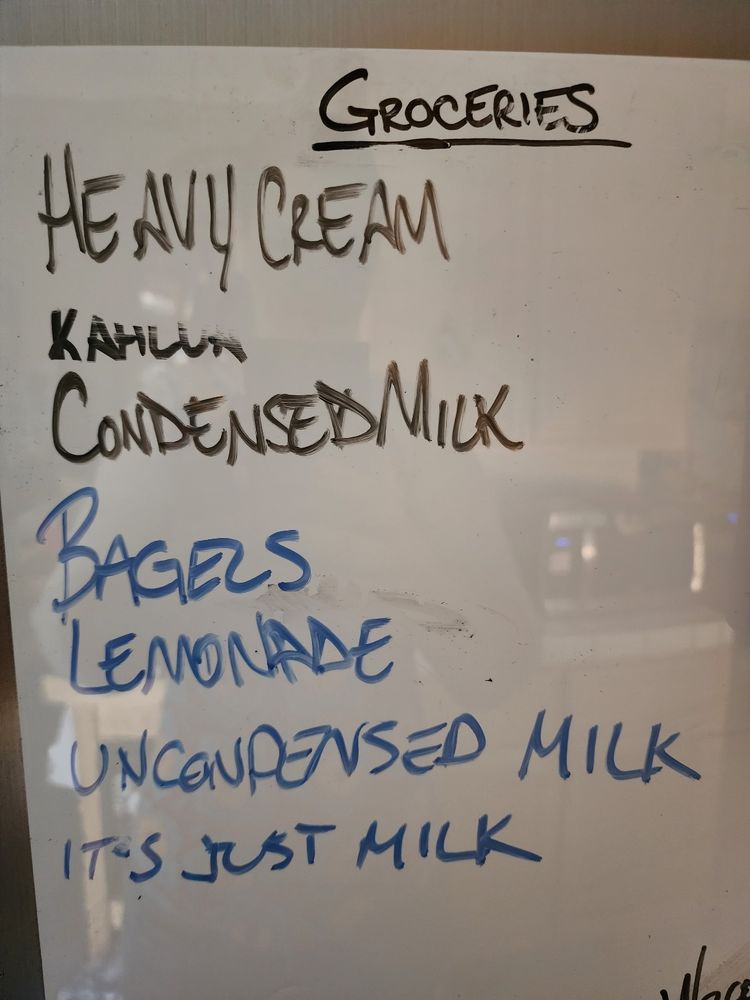 GROCERIES
HEAVY CREAM
KAHLUA
CONDENSED MILK
BAGELS
LEMONADE
UNCONDENSED MILK
IT'S JUST MILK